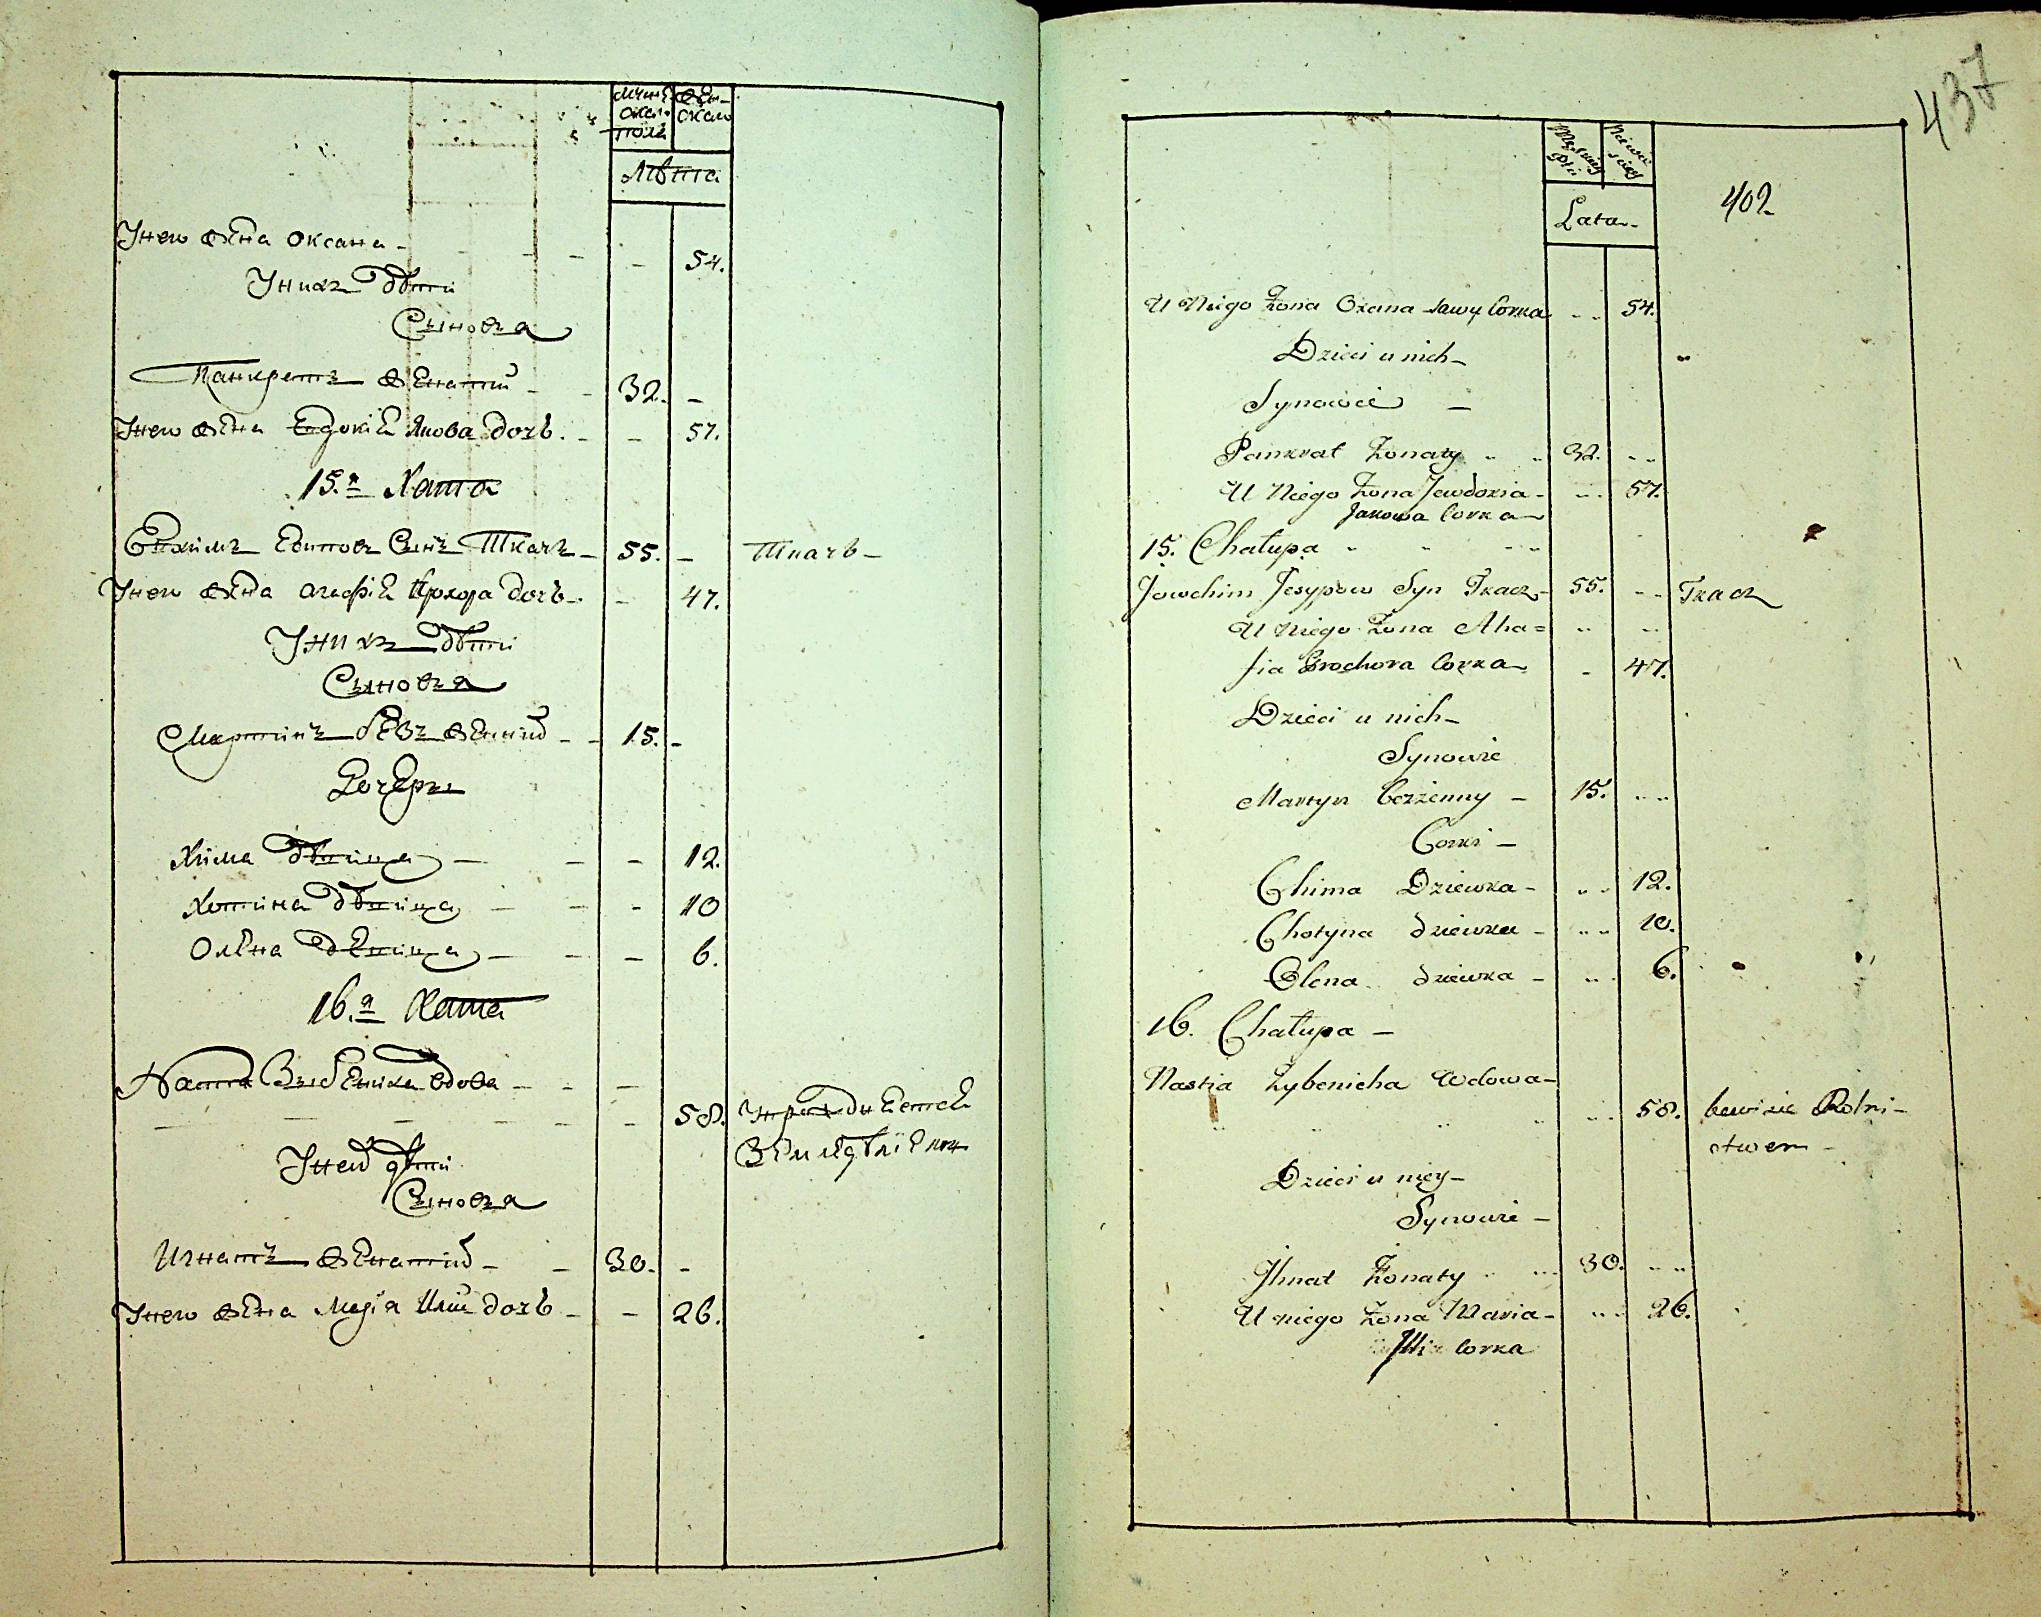 мужеска пола
женска
лѣта
У него жена Оксана - - 54.
У них дѣти
Сыновья
Панкратъ женатій - 32. -
У него жена Евдокія Якова дочь. - 57.
15.я Хата
Евхимъ Есиповъ Сынъ Ткачъ - 55. - Ткачъ -
У него жена Агафія Прохора дочь - - 47.
У нихъ дѣти
Сыновья
Мартинъ безженній - 15. -
Дочери
Хима дѣвица - - 12.
Хотина дѣвица - - 10
Олѣна дѣвица - - 6.
16.я Хата
Настя Зыбениха вдова - -
- - - 58. упражняется
Земледѣліемъ
У ней дѣти
Сыновья
Игнатъ женатій - 30. -
У него жена Марія Иліи дочь - - 26.
437
Męskiey Płci
Niewieściey
Lata
402
U Niego Żona Oxana Sawy Corka 54.
Dzieci u nich -
Synowie -
Pankrat Żonaty 32.
U Niego Żona Jewdokia - 57.
Jakowa Corka
15. Chałupa
Jowchim Jesypow Syn Tkacz - 55. Tkacz
U Niego Żona Aha=
fia Prochora Corka - 47.
Dzieci u nich -
Synowie
Martyn bezżenny - 15.
Corki -
Chima Dziewka - 12.
Chotyna dziewka - 10.
Olena dziewka - 6.
16. Chałupa -
Nastia Zybenicha Wdowa -
58. bawi sie Rolni-
ctwem -
Dzieci u niey -
Synowie -
Jhnat Żonaty 30.
U niego Żona Maria - 26.
Illi Corka